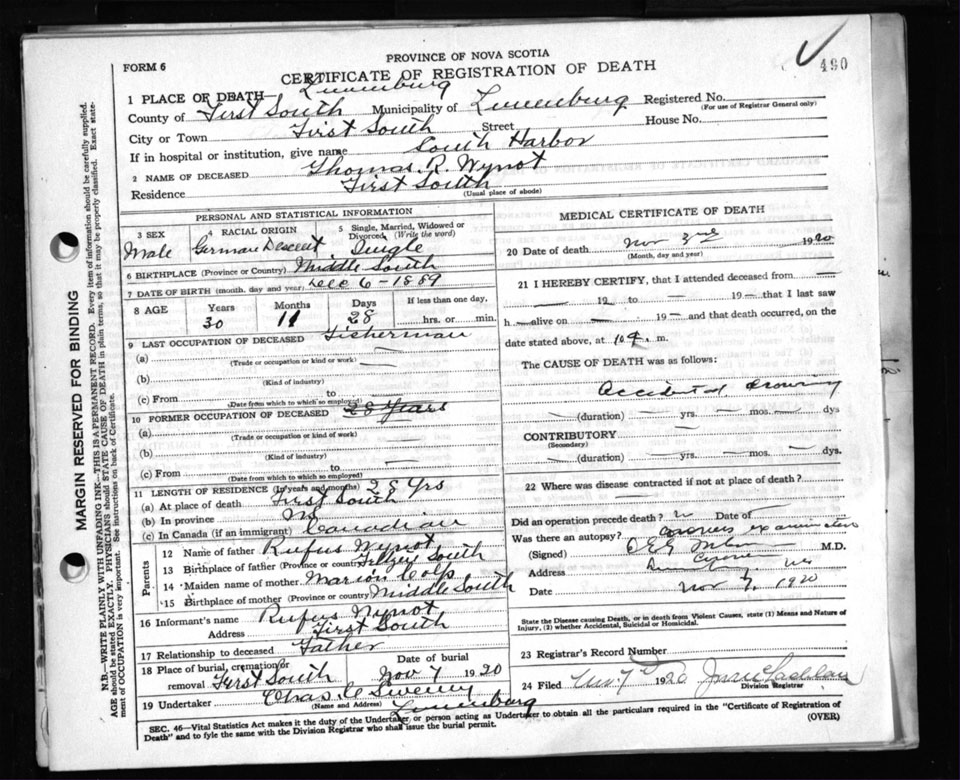 490
PROVINCE OF NOVA SCOTIA
FORM 6
CERTIFICATE OF REGISTRATION OF DEATH
1 PLACE OF DEATH— Lunenburg
County of First South Municipality of Lunenburg Registered No.
(For use of Registrar General only)
City or Town First South Street House No.
If in hospital or institution, give name South Harbor
2 NAME OF DECEASED Thomas R. Wynot
Residence First South
(Usual place of abode)
PERSONAL AND STATISTICAL INFORMATION
3 SEX Male
4 RACIAL ORIGIN German Descent
5 Single, Married, Widowed or Divorced (Write the word) Single
6 BIRTHPLACE (Province or Country) Middle South
7 DATE OF BIRTH (month, day and year) Dec 6 - 1889
8 AGE Years 30 Months 11 Days 28 If less than one day, hrs. or min.
9 LAST OCCUPATION OF DECEASED Fisherman
(a) —
(Trade or occupation or kind or work)
(b)
(Kind of industry)
(c) From to
(Date from which to which so employed)
10 FORMER OCCUPATION OF DECEASED 28 Years
(a) —
(Trade or occupation or kind of work)
(b)
(Kind of industry)
(c) From to
(Date from which to which so employed)
11 LENGTH OF RESIDENCE (In years and months) 28 Yrs
(a) At place of death First South
(b) In province
(c) In Canada (if an immigrant) Canadian
Parents
12 Name of father Rufus Wynot
13 Birthplace of father (Province or country) South
14 Maiden name of mother Marion Colp
15 Birthplace of mother (Province or country) Middle South
16 Informant's name Rufus Wynot
Address First South
17 Relationship to deceased Father
18 Place of burial, cremation or removal First South Date of burial Nov 7 1920
19 Undertaker Chas. Sweeny
(Name and Address) Lunenburg
MEDICAL CERTIFICATE OF DEATH
20 Date of death Nov 1920
(Month, day and year)
21 I HEREBY CERTIFY, that I attended deceased from —
— 19 to — 19 — that I last saw
h— alive on — 19 — and that death occurred, on the
date stated above, at 10 m.
The CAUSE OF DEATH was as follows:
Accidental drowning
— (duration) — yrs. — mos. — dys
CONTRIBUTORY —
(Secondary)
— (duration) — yrs. — mos. — dys
22 Where was disease contracted if not at place of death?
—
Did an operation precede death? Date of —
Was there an autopsy? Coroners examination
(Signed) M.D.
Coroner
Address Lunenburg, NS
Date Nov 7, 1920
State the Disease causing Death, or in death from Violent Causes, state (1) Means and Nature of
Injury, (2) whether Accidental, Suicidal or Homicidal.
23 Registrar's Record Number
24 Filed 1920
Division Registrar
SEC. 46—Vital Statistics Act makes it the duty of the Undertaker or person acting as Undertaker to obtain all the particulars required in the "Certificate of Registration of
Death" and to fyle the same with the Division Registrar who shall issue the burial permit.
(OVER)
MARGIN RESERVED FOR BINDING
N.B.—WRITE PLAINLY WITH UNFADING INK—THIS IS A PERMANENT RECORD. Every item of information should be carefully supplied.
AGE should be stated EXACTLY. PHYSICIANS should STATE CAUSE OF DEATH in plain terms, so that it may be properly classified. Exact state-
ment of OCCUPATION is very important. See instructions on back of Certificate.